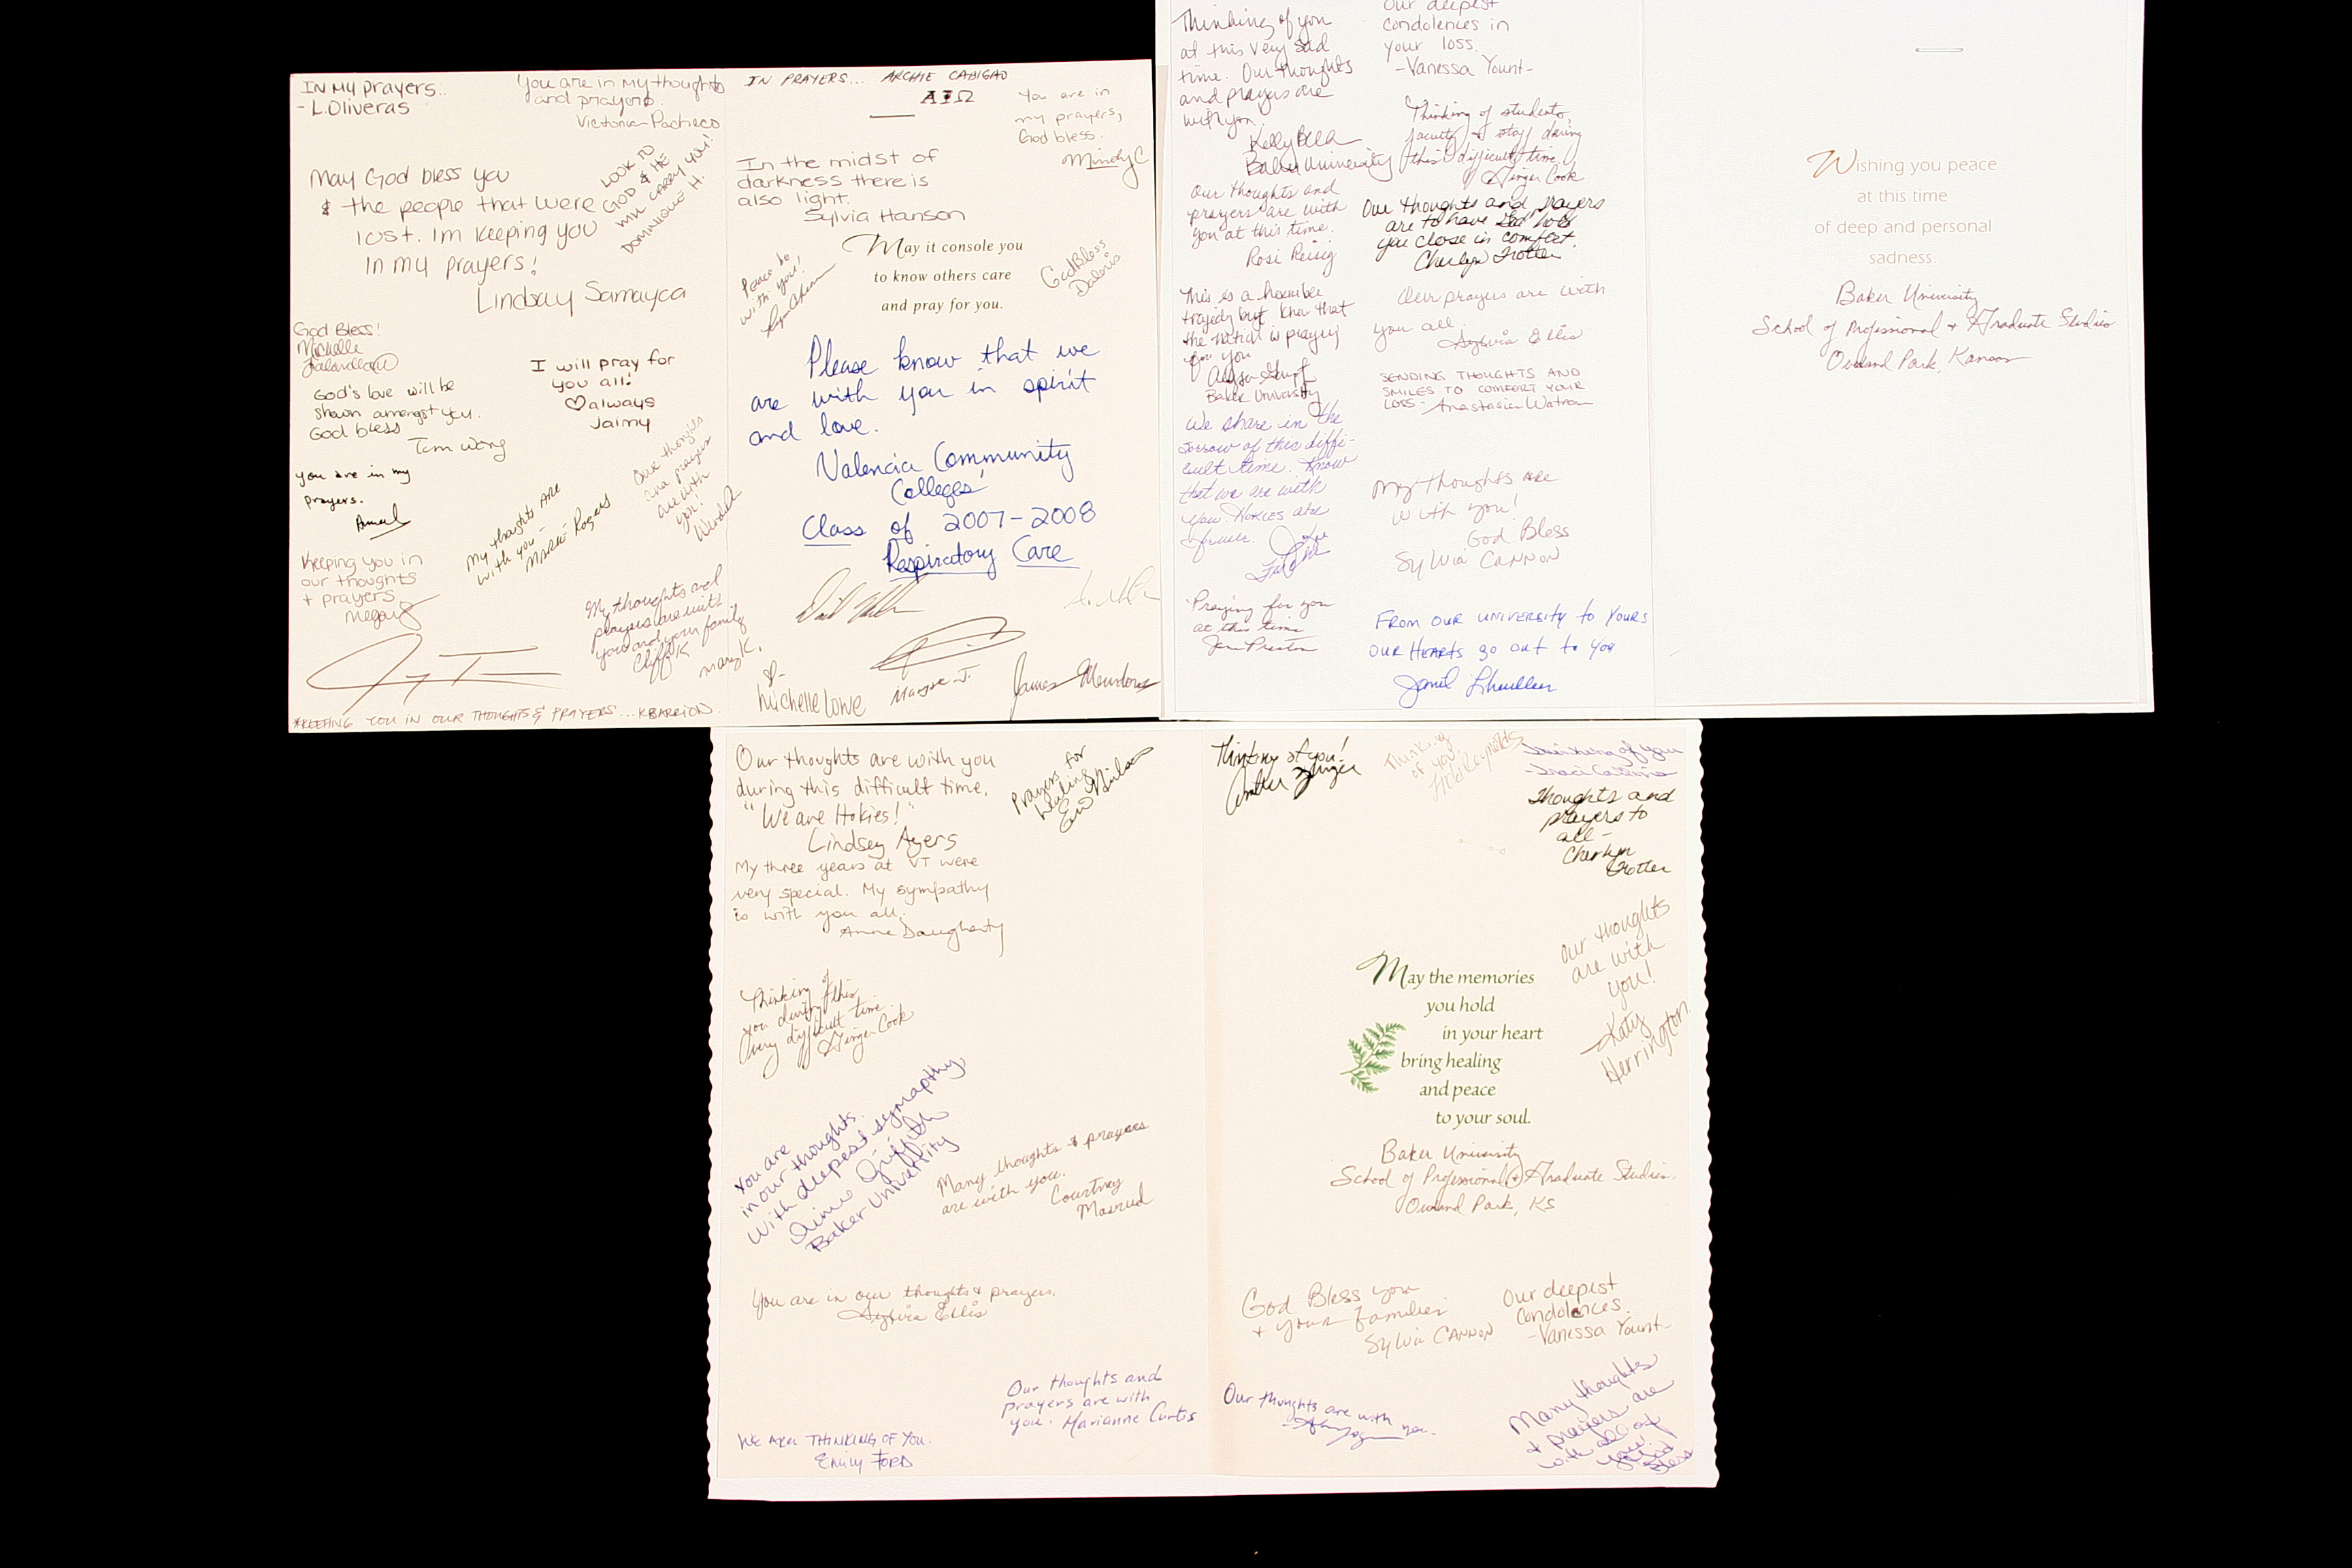 IN My prayers..
- L. Oliveras
You are in my thoughts
and prayers.
Victoria Pacheco
May God bless you
& the people that were
lost. Im keeping you
In my prayers!
Lindsay Samayoa
LOOK TO
GOD & HE
WILL CARRY YOU!!
DOMINIQUE H.
God Bless!
Michelle
God's love will be
shown amongst you.
God bless
Tam Wong
I will pray for
you all!
♡always
Jaimy
you are in my
prayers.
My thoughts ARE
with you -
MARIE Rogers
Our thoughts
and prayers
are with
you!
Keeping you in
our thoughts
+ prayers
Megan
My thoughts and
prayers are with
you and your family
Cliff K
Mary K.
*KEEPING YOU IN OUR THOUGHTS & PRAYERS... KBARRION.
IN PRAYERS... ARCHIE CABIGAO
ΑΨΩ
You are in
my prayers,
God bless.
Mindy C
In the midst of
darkness there is
also light.
Sylvia Hanson
Peace be
with you!
May it console you
to know others care
and pray for you.
God Bless
Daleris
Please know that we
are with you in spirit
and love.
Valencia Community
Colleges'
Class of 2007-2008
Respiratory Care
Michelle Lowe
Margie J.
James Mendoza
Thinking of you
at this very sad
time. Our thoughts
and prayers are
with you.
Kelly Bell
Baker University
Our thoughts and
prayers are with
you at this time.
Rosi Reisig
This is a horrible
tragedy but know that
the nation is praying
for you
Baker University
We share in the
sorrow of this diffi-
cult time. Know
that we are with
you. Hokies are
forever.
Praying for you
at this time
Jen Preston
Our deepest
condolences in
your loss.
-Vanessa Yount-
Thinking of students,
faculty & staff during
this difficult time.
Ginger Cook
Our thoughts and prayers
are to have God hold
you close in comfort.
Cherlyn Trotter
Our prayers are with
you all.
Sylvia Ellis
SENDING THOUGHTS AND
SMILES TO COMFORT YOUR
LOSS - Anastasia Watson
My Thoughts ARE
with you!
God Bless
Sylvia CANNON
FROM OUR UNIVERSITY to YOURS
OUR HEARTS go out to you
Wishing you peace
at this time
of deep and personal
sadness.
Baker University
School of Professional + Graduate Studies
Overland Park, Kansas
Our thoughts are with you
during this difficult time.
"We are Hokies!"
Lindsey Ayers
My three years at VT were
very special. My sympathy
is with you all.
Anne Daugherty
Prayers for
healing
Thinking of
you during this
very difficult time.
Ginger Cook
You are
in our thoughts.
With deepest symapthy,
Griffith
Baker University
Many thoughts & prayers
are with you.
Courtney
Masrud
You are in our thoughts & prayers.
Sylvia Ellis
Our thoughts and
prayers are with
you. Marianne Curtis
WE ARE THINKING OF YOU.
Emily FORD
Thinking of you!
Thinking
of you.
Thinking of you
Thoughts and
prayers to
all -
Cherlyn
Trotter
Our thoughts
are with
you!
-Katy
Herrington
May the memories
you hold
in your heart
bring healing
and peace
to your soul.
Baker University
School of Professional + Graduate Studies
Overland Park, KS
God Bless you
+ your families
Sylvia CANNON
Our deepest
condolences.
-Vanessa Yount
Our thoughts are with
you.
Many thoughts
+ prayers are
with all of
you!
God
Bless